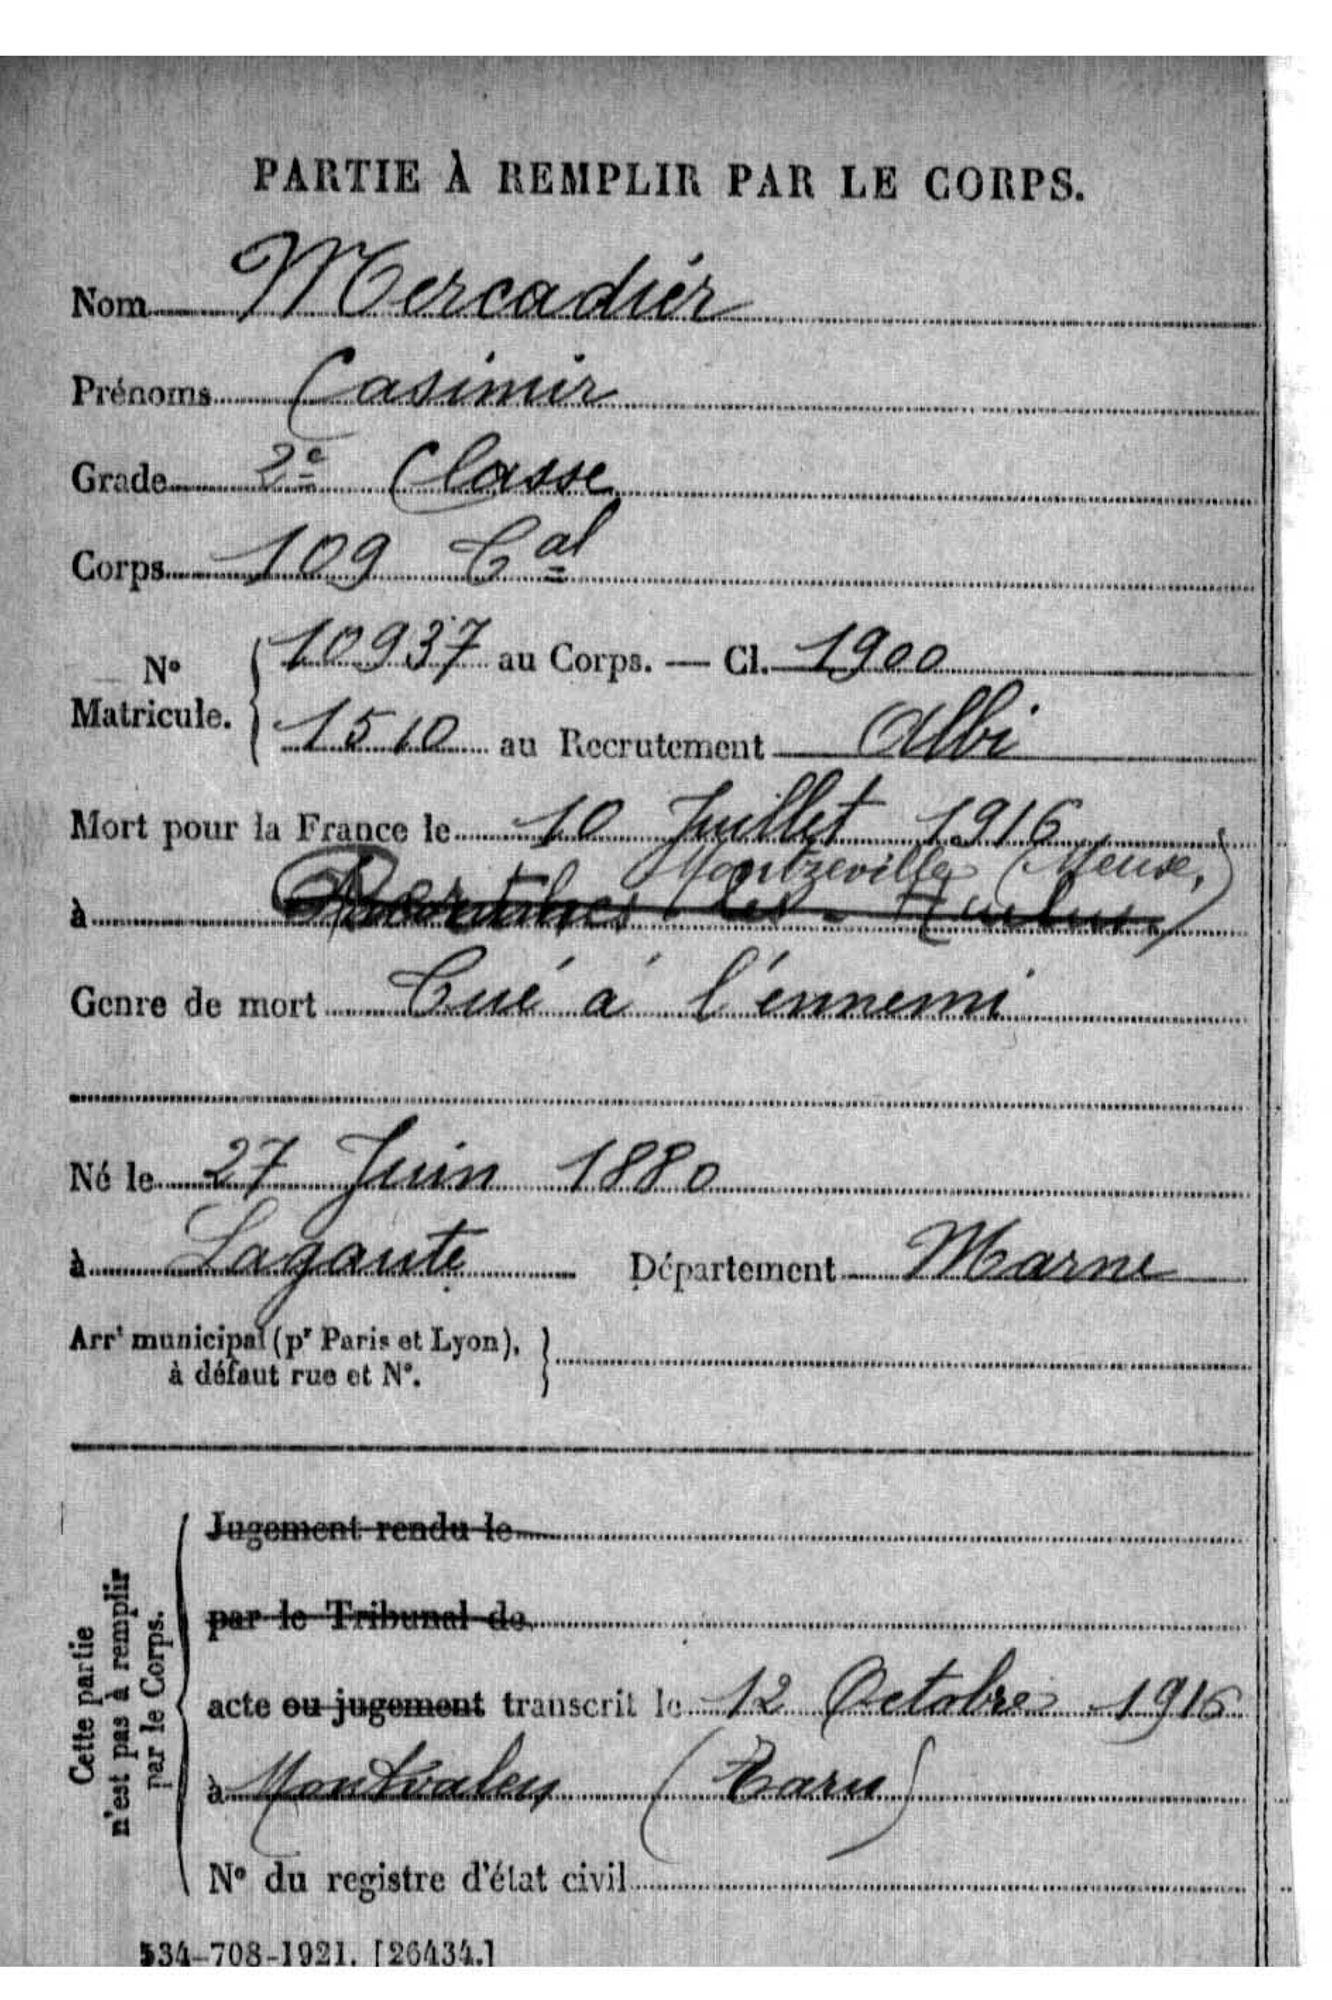 PARTIE À REMPLIR PAR LE CORPS.
Nom Mercadiér
Prénoms Casimir
Grade 2e Classe
Corps 109 Cal
No Matricule. { 10937 au Corps. — Cl. 1900
1510 au Recrutement Albi
Mort pour la France le 10 Juillet 1916
Montzeville (Meuse,)
à
Genre de mort Tué à l'énnemi
Né le 27 Juin 1880
à Lagauté Département Marne
Arrt municipal (pr Paris et Lyon), }
à défaut rue et No.
Cette partie
n'est pas à remplir
par le Corps.
Jugement rendu le
par le Tribunal de
acte ou jugement transcrit le 12 Octobre 1916
à Montvalen (Tarn)
No du registre d'état civil
534-708-1921. [26434.]